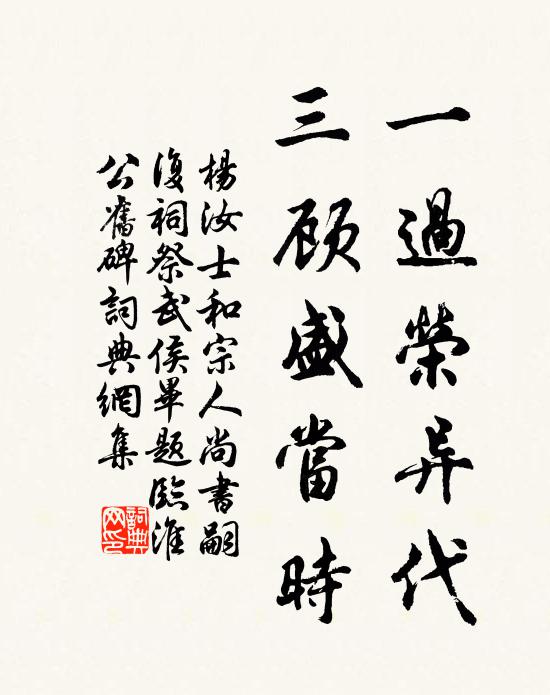 一過榮异代
三顾盛當時
楊汝士和宗人尚書嗣
復祠祭武侯畢題臨淮
公舊碑詞典網集
詞典网印